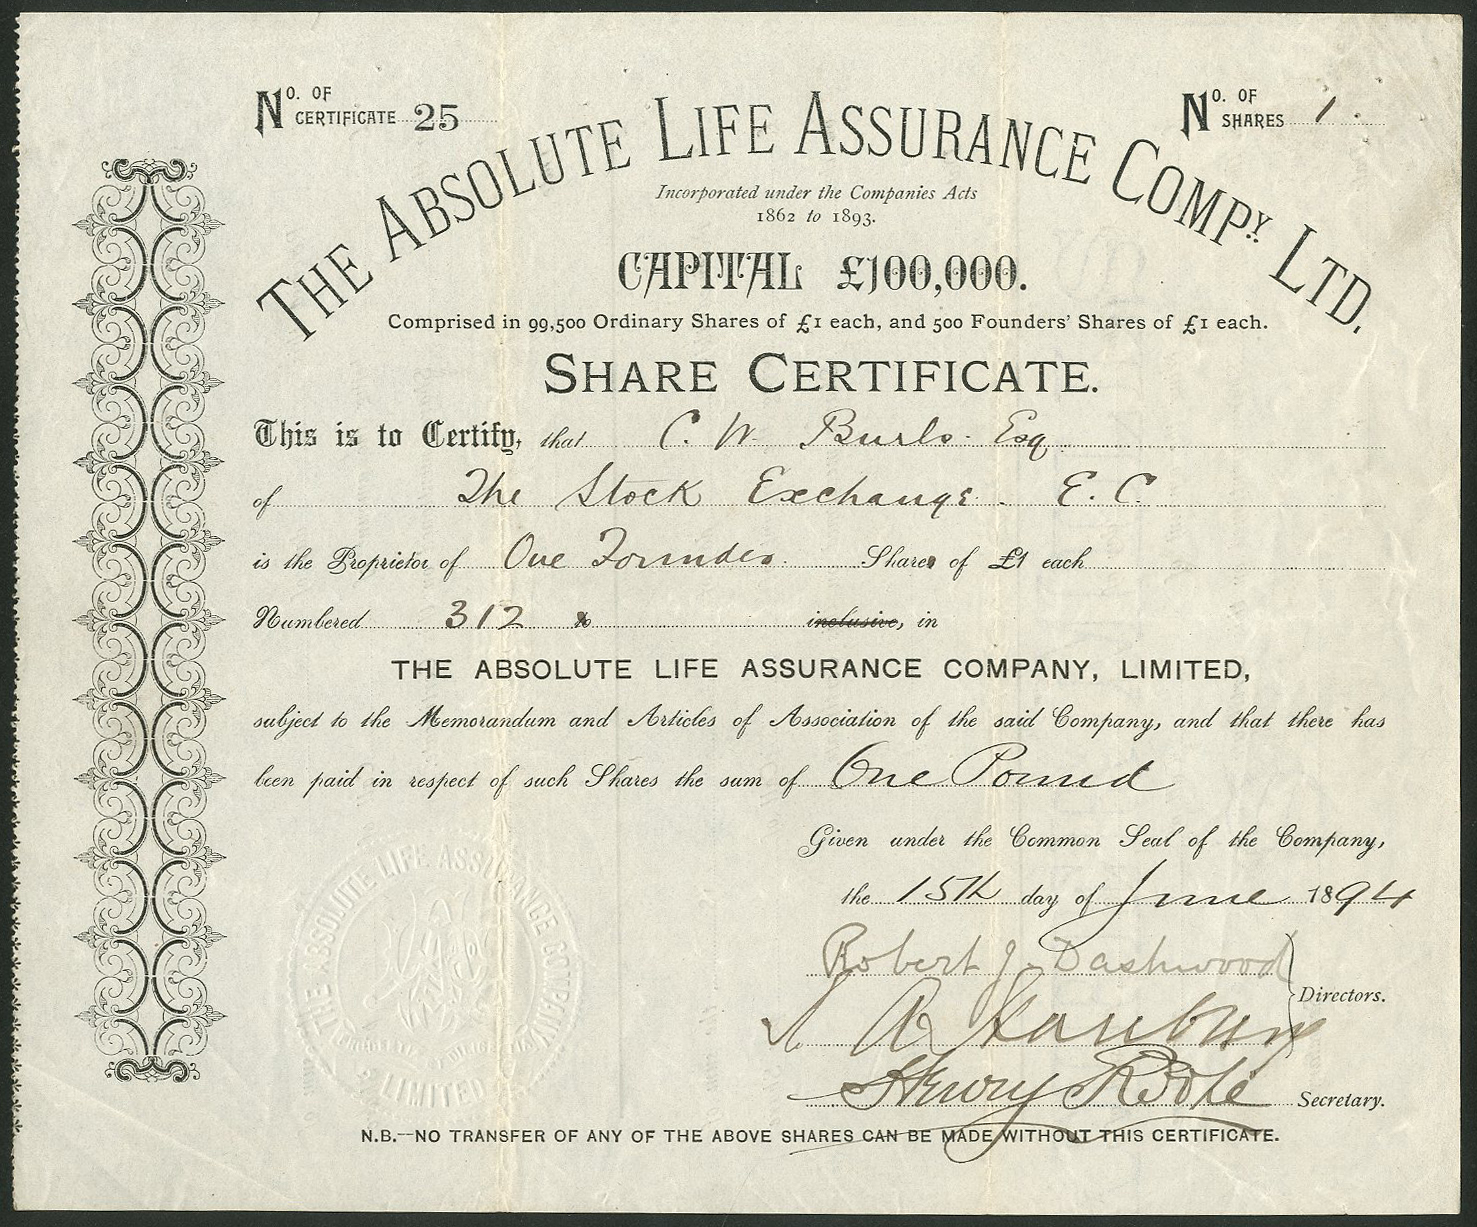 No. OF CERTIFICATE 25
No. OF SHARES 1
THE ABSOLUTE LIFE ASSURANCE COMPY. LTD.
Incorporated under the Companies Acts
1862 to 1893.
CAPITAL £100,000.
Comprised in 99,500 Ordinary Shares of £1 each, and 500 Founders' Shares of £1 each.
SHARE CERTIFICATE.
This is to Certify, that C. W. Burls. Esq
of The Stock Exchange. E. C.
is the Proprietor of One Founders. Share of £1 each
Numbered 312 to inclusive, in
THE ABSOLUTE LIFE ASSURANCE COMPANY, LIMITED,
subject to the Memorandum and Articles of Association of the said Company, and that there has
been paid in respect of such Shares the sum of One Pound
Given under the Common Seal of the Company,
the 15th day of June 1894
Robert J. Dashwood
Directors.
A
Henry Secretary.
N.B.—NO TRANSFER OF ANY OF THE ABOVE SHARES CAN BE MADE WITHOUT THIS CERTIFICATE.
THE ABSOLUTE LIFE ASSURANCE COMPANY
LIMITED